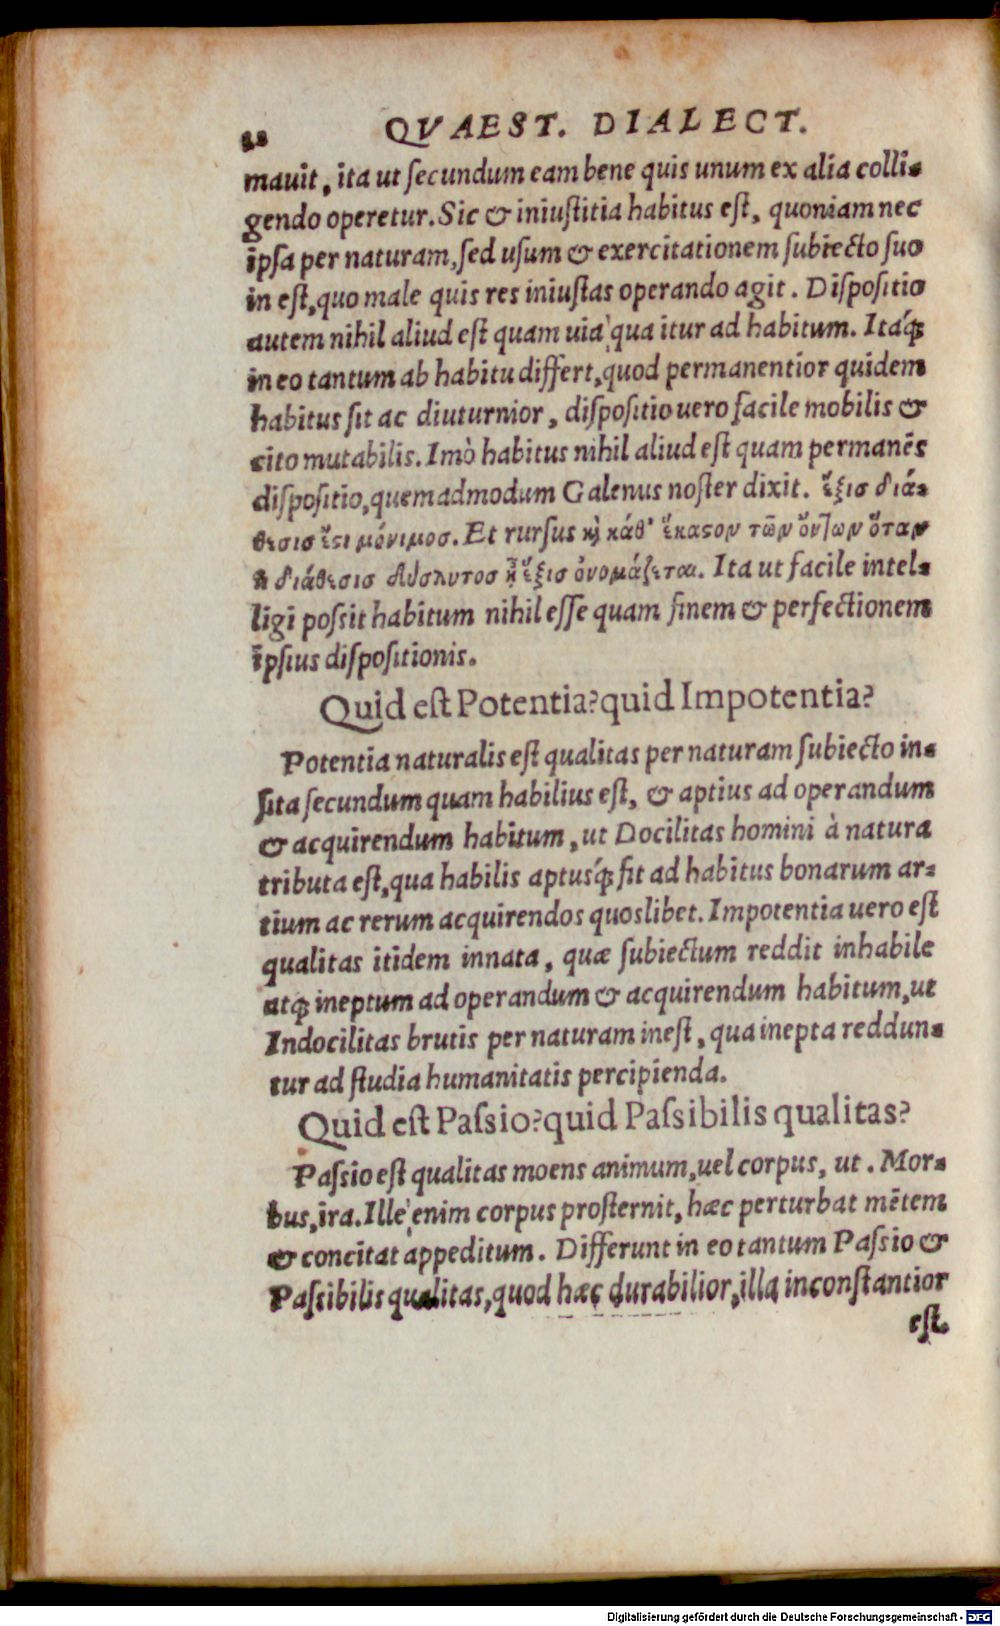 22 QVAEST. DIALECT.
mauit, ita ut ſecundum eam bene quis unum ex alia colli-
gendo operetur. Sic & iniuſtitia habitus eſt, quoniam nec
ipſa per naturam, ſed uſum & exercitationem ſubiecto ſuo
in eſt, quo male quis res iniuſtas operando agit. Diſpoſitio
autem nihil aliud eſt quam uia qua itur ad habitum. Itaq́
in eo tantum ab habitu differt, quod permanentior quidem
habitus ſit ac diuturnior, diſpoſitio uero facile mobilis &
cito mutabilis. Imò habitus nihil aliud eſt quam permanēs
diſpoſitio, quemadmodum Galenus noſter dixit. ἕξισ διά-
θεσισ ἔςι μόνιμοσ. Et rurſus κỳ κάθ' ἕκαςον τῶν ὄντων ὅταν
ἡ διάθεσισ δύσλυτοσ ᾖ ἕξισ ὀνομάζεται. Ita ut facile intel-
ligi poſsit habitum nihil eſſe quam finem & perfectionem
ipſius diſpoſitionis.
Quid eſt Potentia? quid Impotentia?
Potentia naturalis eſt qualitas per naturam ſubiecto in-
ſita ſecundum quam habilius eſt, & aptius ad operandum
& acquirendum habitum, ut Docilitas homini à natura
tributa eſt, qua habilis aptusq́ fit ad habitus bonarum ar-
tium ac rerum acquirendos quoslibet. Impotentia uero eſt
qualitas itidem innata, quæ ſubiectum reddit inhabile
atq; ineptum ad operandum & acquirendum habitum, ut
Indocilitas brutis per naturam ineſt, qua inepta reddun-
tur ad ſtudia humanitatis percipienda.
Quid eſt Paſsio? quid Paſsibilis qualitas?
Paſsio eſt qualitas moens animum, uel corpus, ut. Mor-
bus, ira. Ille enim corpus proſternit, hæc perturbat mētem
& concitat appeditum. Differunt in eo tantum Paſsio &
Paſsibilis qualitas, quod hæc durabilior, illa inconſtantior
eſt.
Digitalisierung gefördert durch die Deutsche Forschungsgemeinschaft - DFG